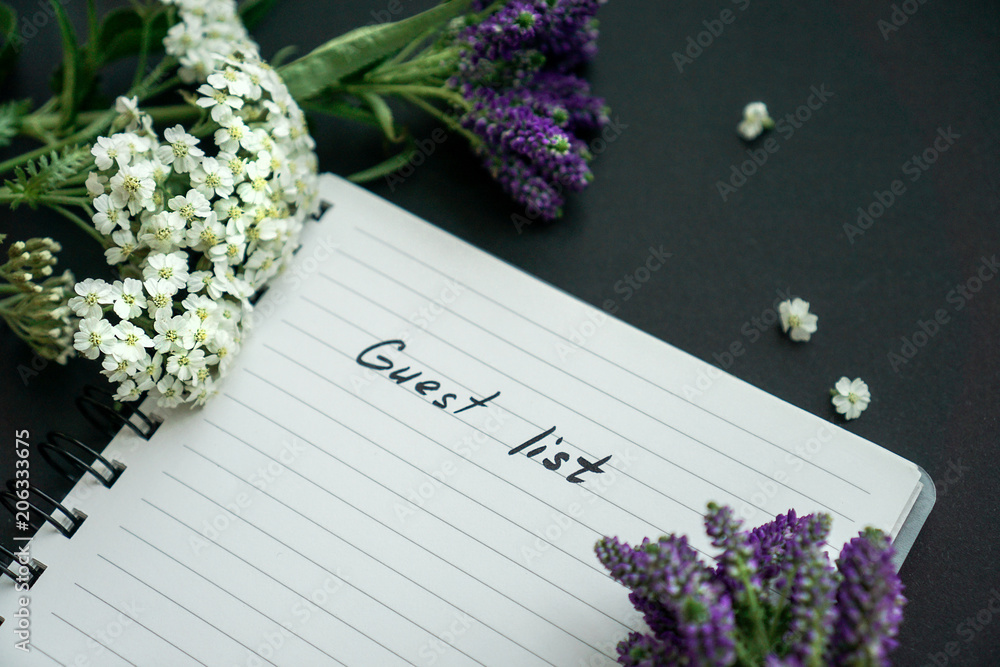 Guest list
Adobe Stock | #206333675